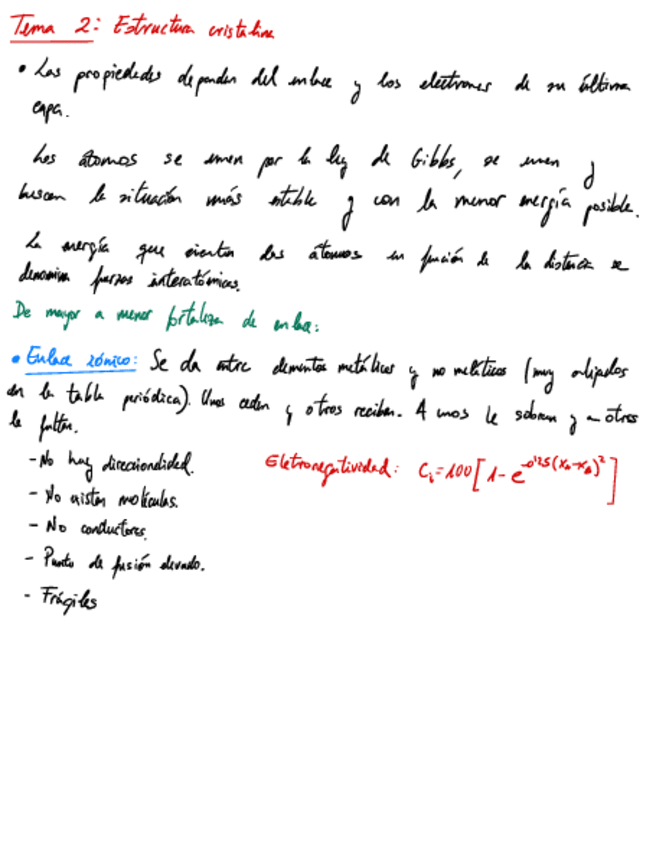 Tema 2: Estructura cristalina
• Las propiedades dependen del enlace y los electrones de su última
capa.
Los átomos se unen por la ley de Gibbs, se unen y
buscan la situación más estable y con la menor energía posible.
La energía que sienten dos átomos en función de la distancia se
denomina fuerzas interatómicas.
De mayor a menor fortaleza de enlace:
• Enlace iónico: Se da entre elementos metálicos y no metálicos (muy alejados
en la tabla periódica). Unos ceden y otros reciben. A unos le sobran y a otros
le faltan.
- No hay direccionalidad.
Eletronegatividad: Ci = 100 [1 - e^-0'25(xA-xB)^2]
- No existen moléculas.
- No conductores.
- Punto de fusión elevado.
- Frágiles